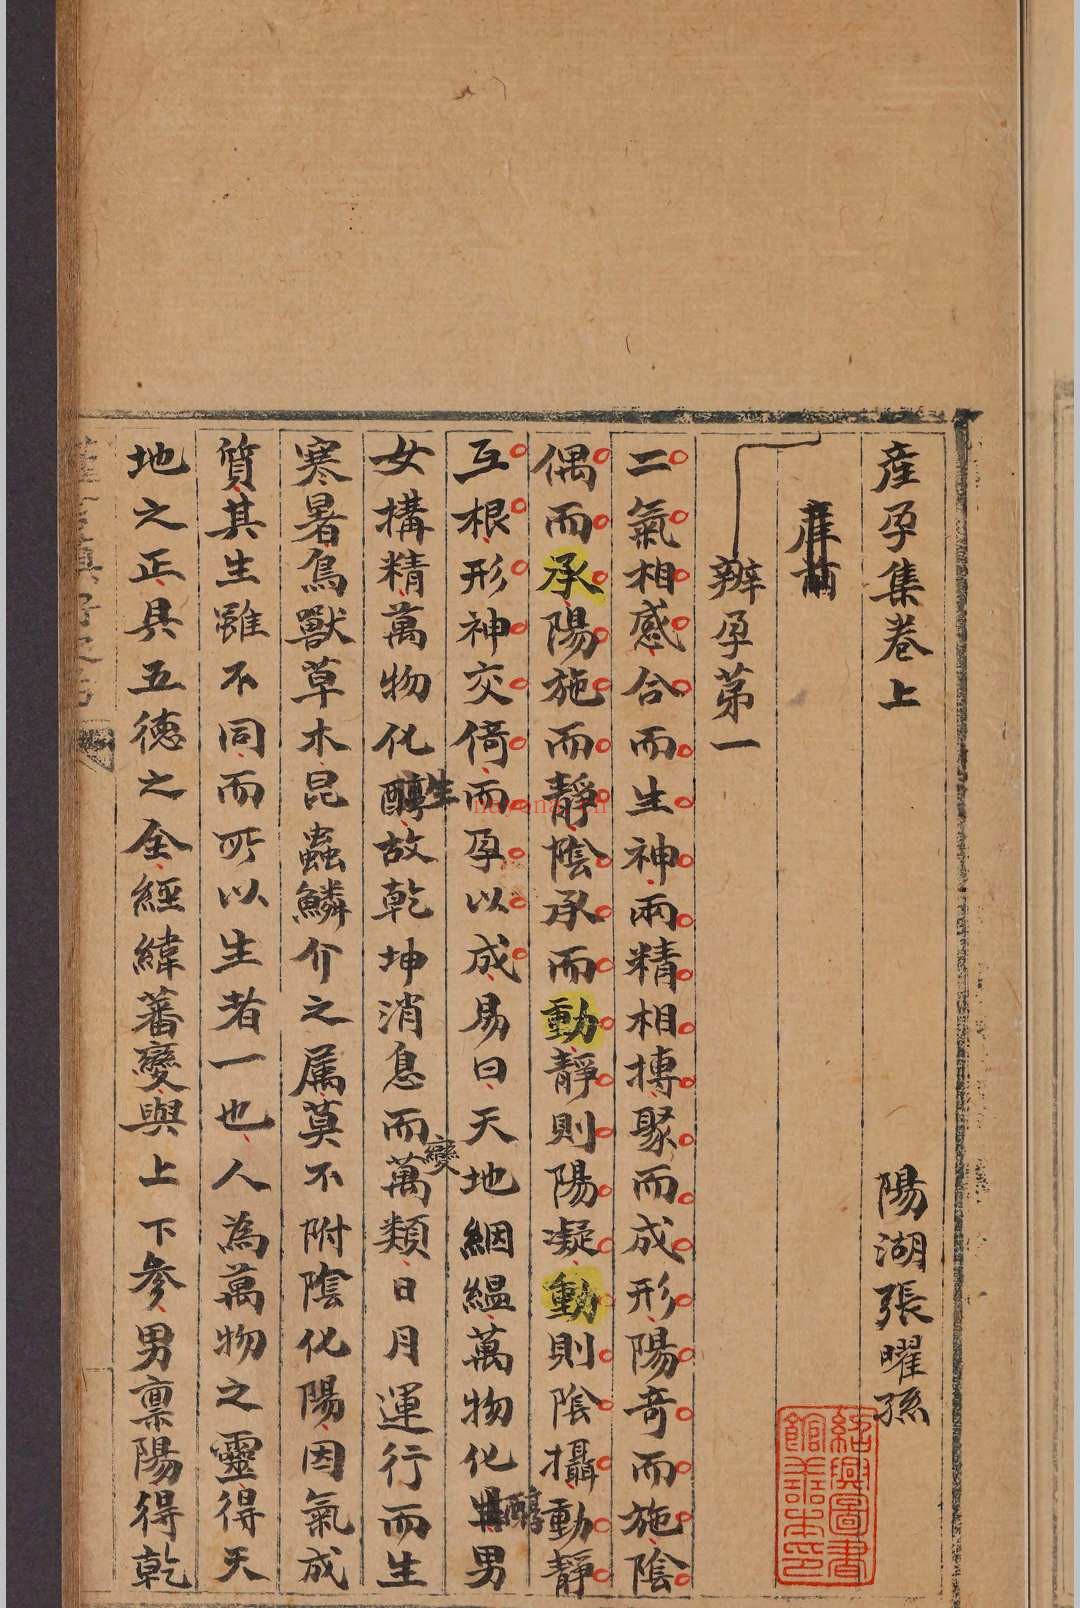 產孕集卷上
陽湖張曜孫
產前
辨孕第一
二氣相感合而生神兩精相摶聚而成形陽奇而施陰
偶而承陽施而靜陰承而動靜則陽凝動則陰攝動靜
互根形神交倚而孕以成易曰天地絪縕萬物化醇男
女搆精萬物化生故乾坤消息而萬類變日月運行而生
寒暑鳥獸草木昆蟲鱗介之屬莫不附陰化陽因氣成
質其生雖不同而所以生者一也人為萬物之靈得天
地之正具五德之全經緯蕃變與上下參男禀陽得乾
紹興圖書館善本印